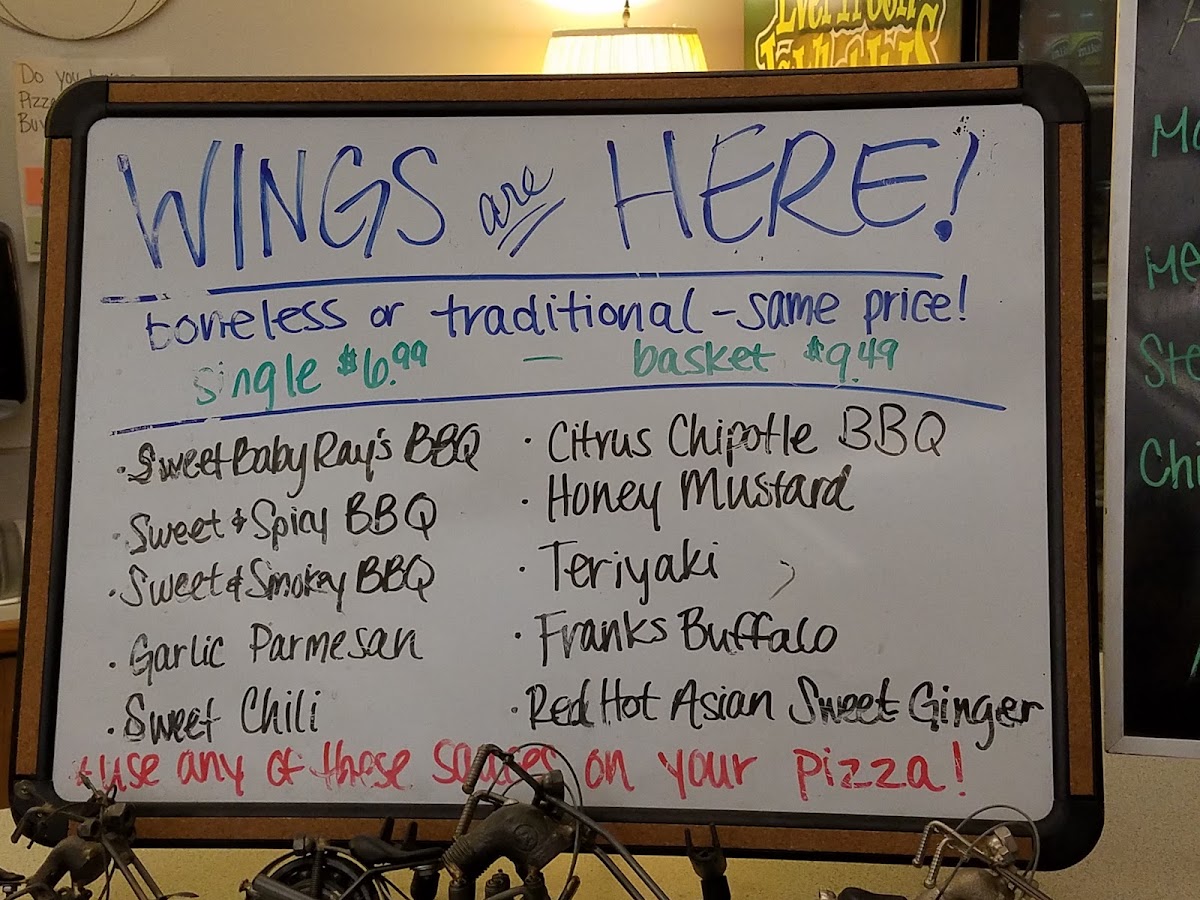 WINGS are HERE!
boneless or traditional - same price!
single $6.99 - basket $9.49
· Sweet Baby Ray's BBQ
· Sweet & Spicy BBQ
· Sweet & Smokey BBQ
· Garlic Parmesan
· Sweet Chili
· Citrus Chipotle BBQ
· Honey Mustard
· Teriyaki
· Franks Buffalo
· Red Hot Asian Sweet Ginger
use any of these sauces on your pizza!
Do you
Pizza